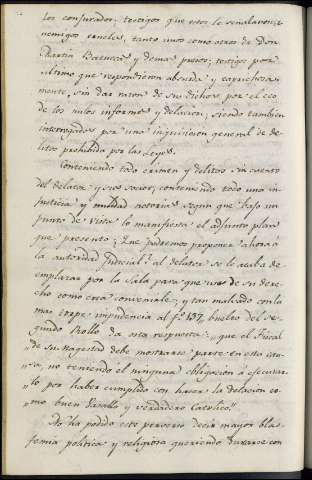 los conjurados; testigos que estos le señalaron, e-
nemigos crueles, tanto unos como otros de Don
Martin Batuecas y demas presos; testigos por
ultimo que respondieron absurda y caprichosa-
mente, sin dar razon de sus dichos, por el eco
de los nulos informes y delacion, siendo tambien
interrogados por una inquisicion general de de-
litos prohibida por las Leyes.
Conteniendo todo crimen y delitos sin cuento
del delator y sus socios; conteniendo todo una in-
justicia y nulidad notorias segun que bajo un
punto de vista lo manifiesta el adjunto plan
que presento; Que podremos proponer ahora á
la autoridad Judicial? al delator se le acaba de
emplazar por la Sala para que use de su dere-
cho como crea conveniente; y tan malvado con la
mas torpe impudencia al fº 137 buelto del se-
guido Rollo da esta respuesta: „que el Fiscal
„de su Magestad debe mostrarse parte en esta cau-
„sa, no teniendo el ninguna obligacion á ejecutar-
„lo por haber cumplido con hacer la delacion co-
„mo buen Vasallo y verdadero Catolico."
No ha podido este perverso decir mayor blas-
femia politica y religiosa queriendo
con